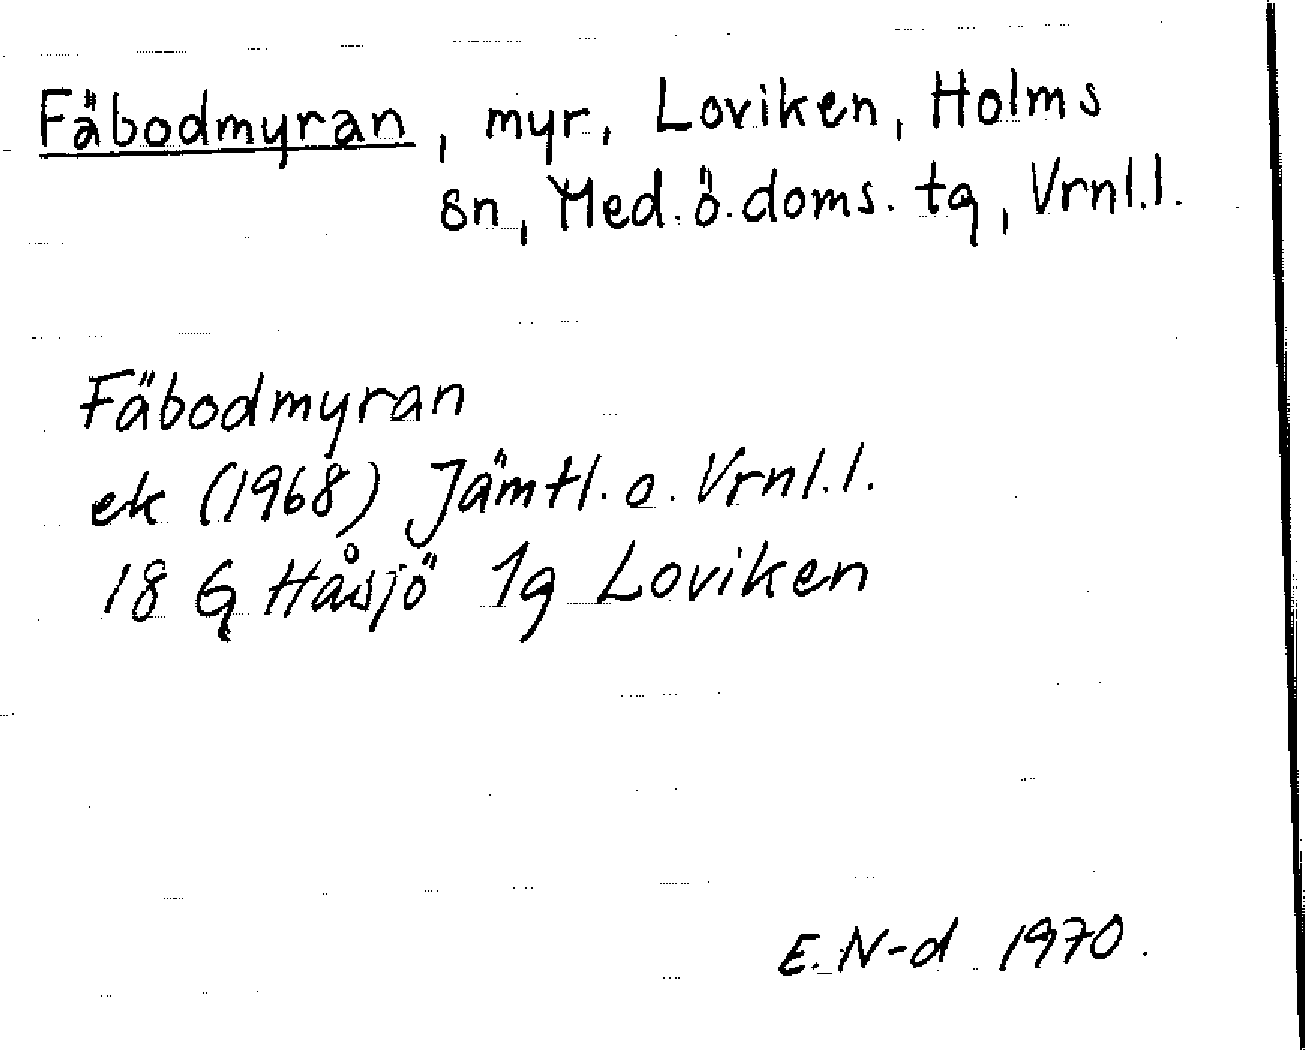 Fäbodmyran, myr, Loviken, Holms
sn, Med. ö. doms. tg, Vrnl.l.
Fäbodmyran
ek (1968) Jämtl. o. Vrnl.l.
18 G Håsjö 1g Loviken
E. N-d 1970.